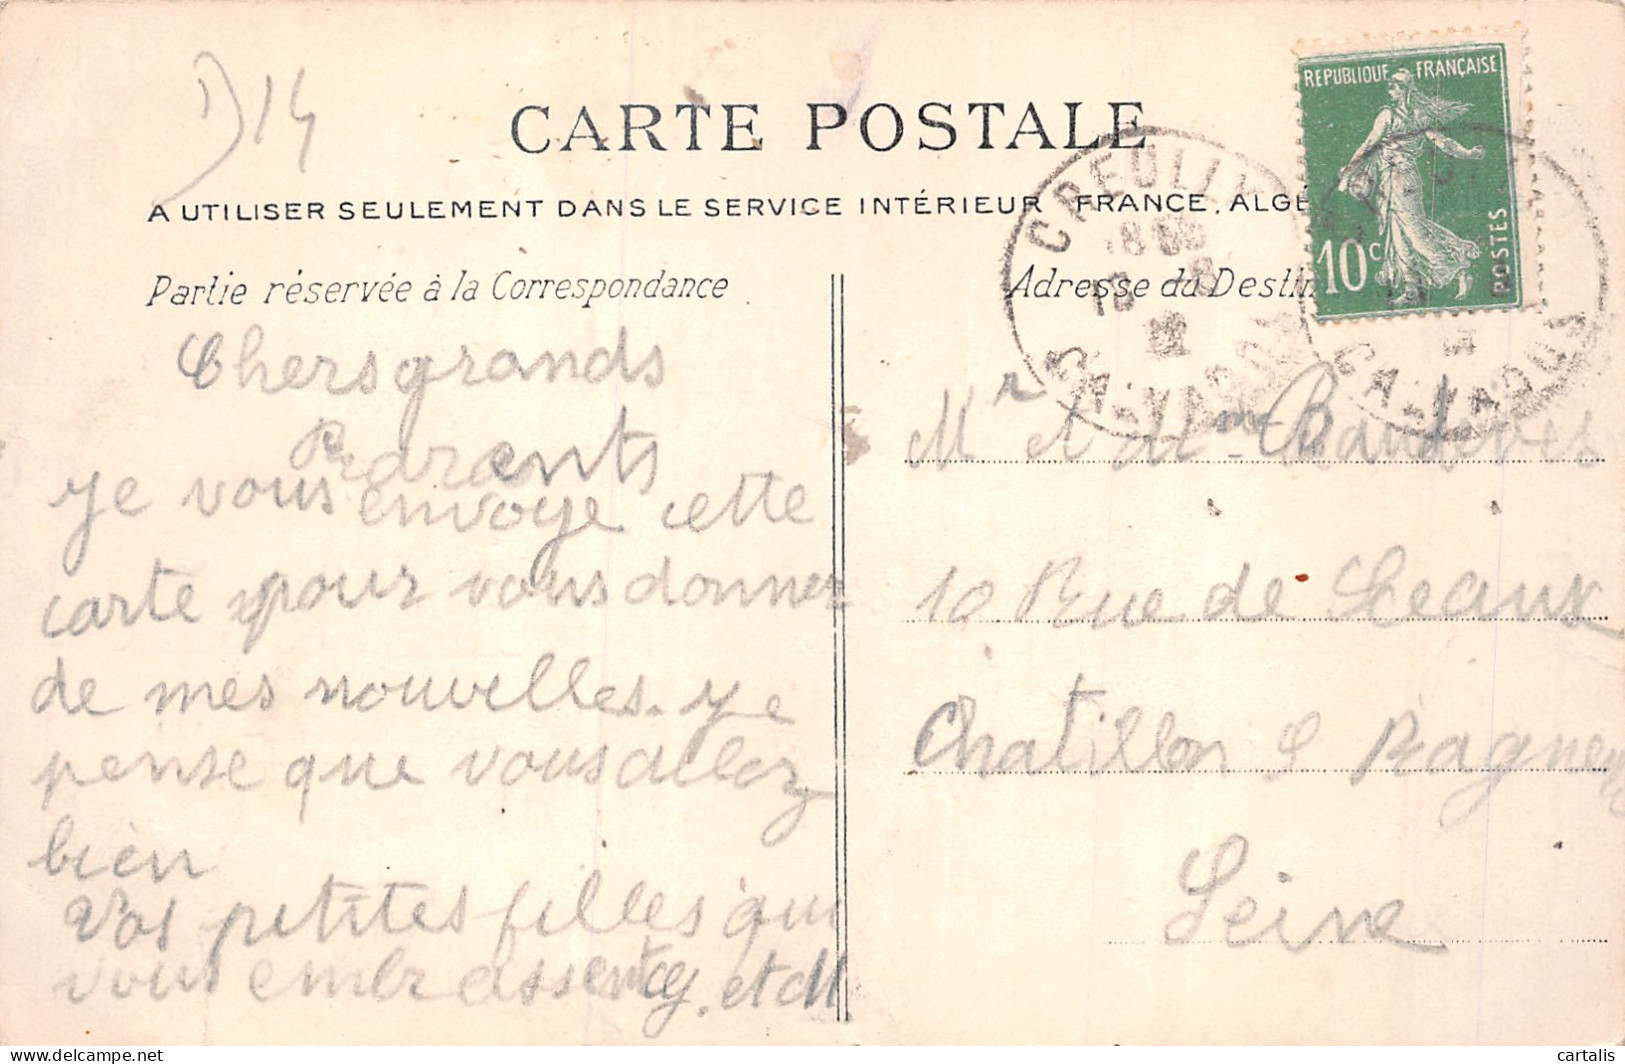 D14
CARTE POSTALE
A UTILISER SEULEMENT DANS LE SERVICE INTÉRIEUR FRANCE, ALGÉ
REPUBLIQUE FRANÇAISE
10c
POSTES
CREULLY
CALVADOS
CALVADOS
Partie réservée à la Correspondance
Chers grands
Parents
je vous envoye cette
carte pour vous donner
de mes nouvelles. je
pense que vous allez
bien
Vos petites filles qui
vous embrassent et M
Adresse du Destin
Mr et Mme
10 Rue de Sceaux
Chatillon S Bagneux
Seine
delcampe.net
cartalis